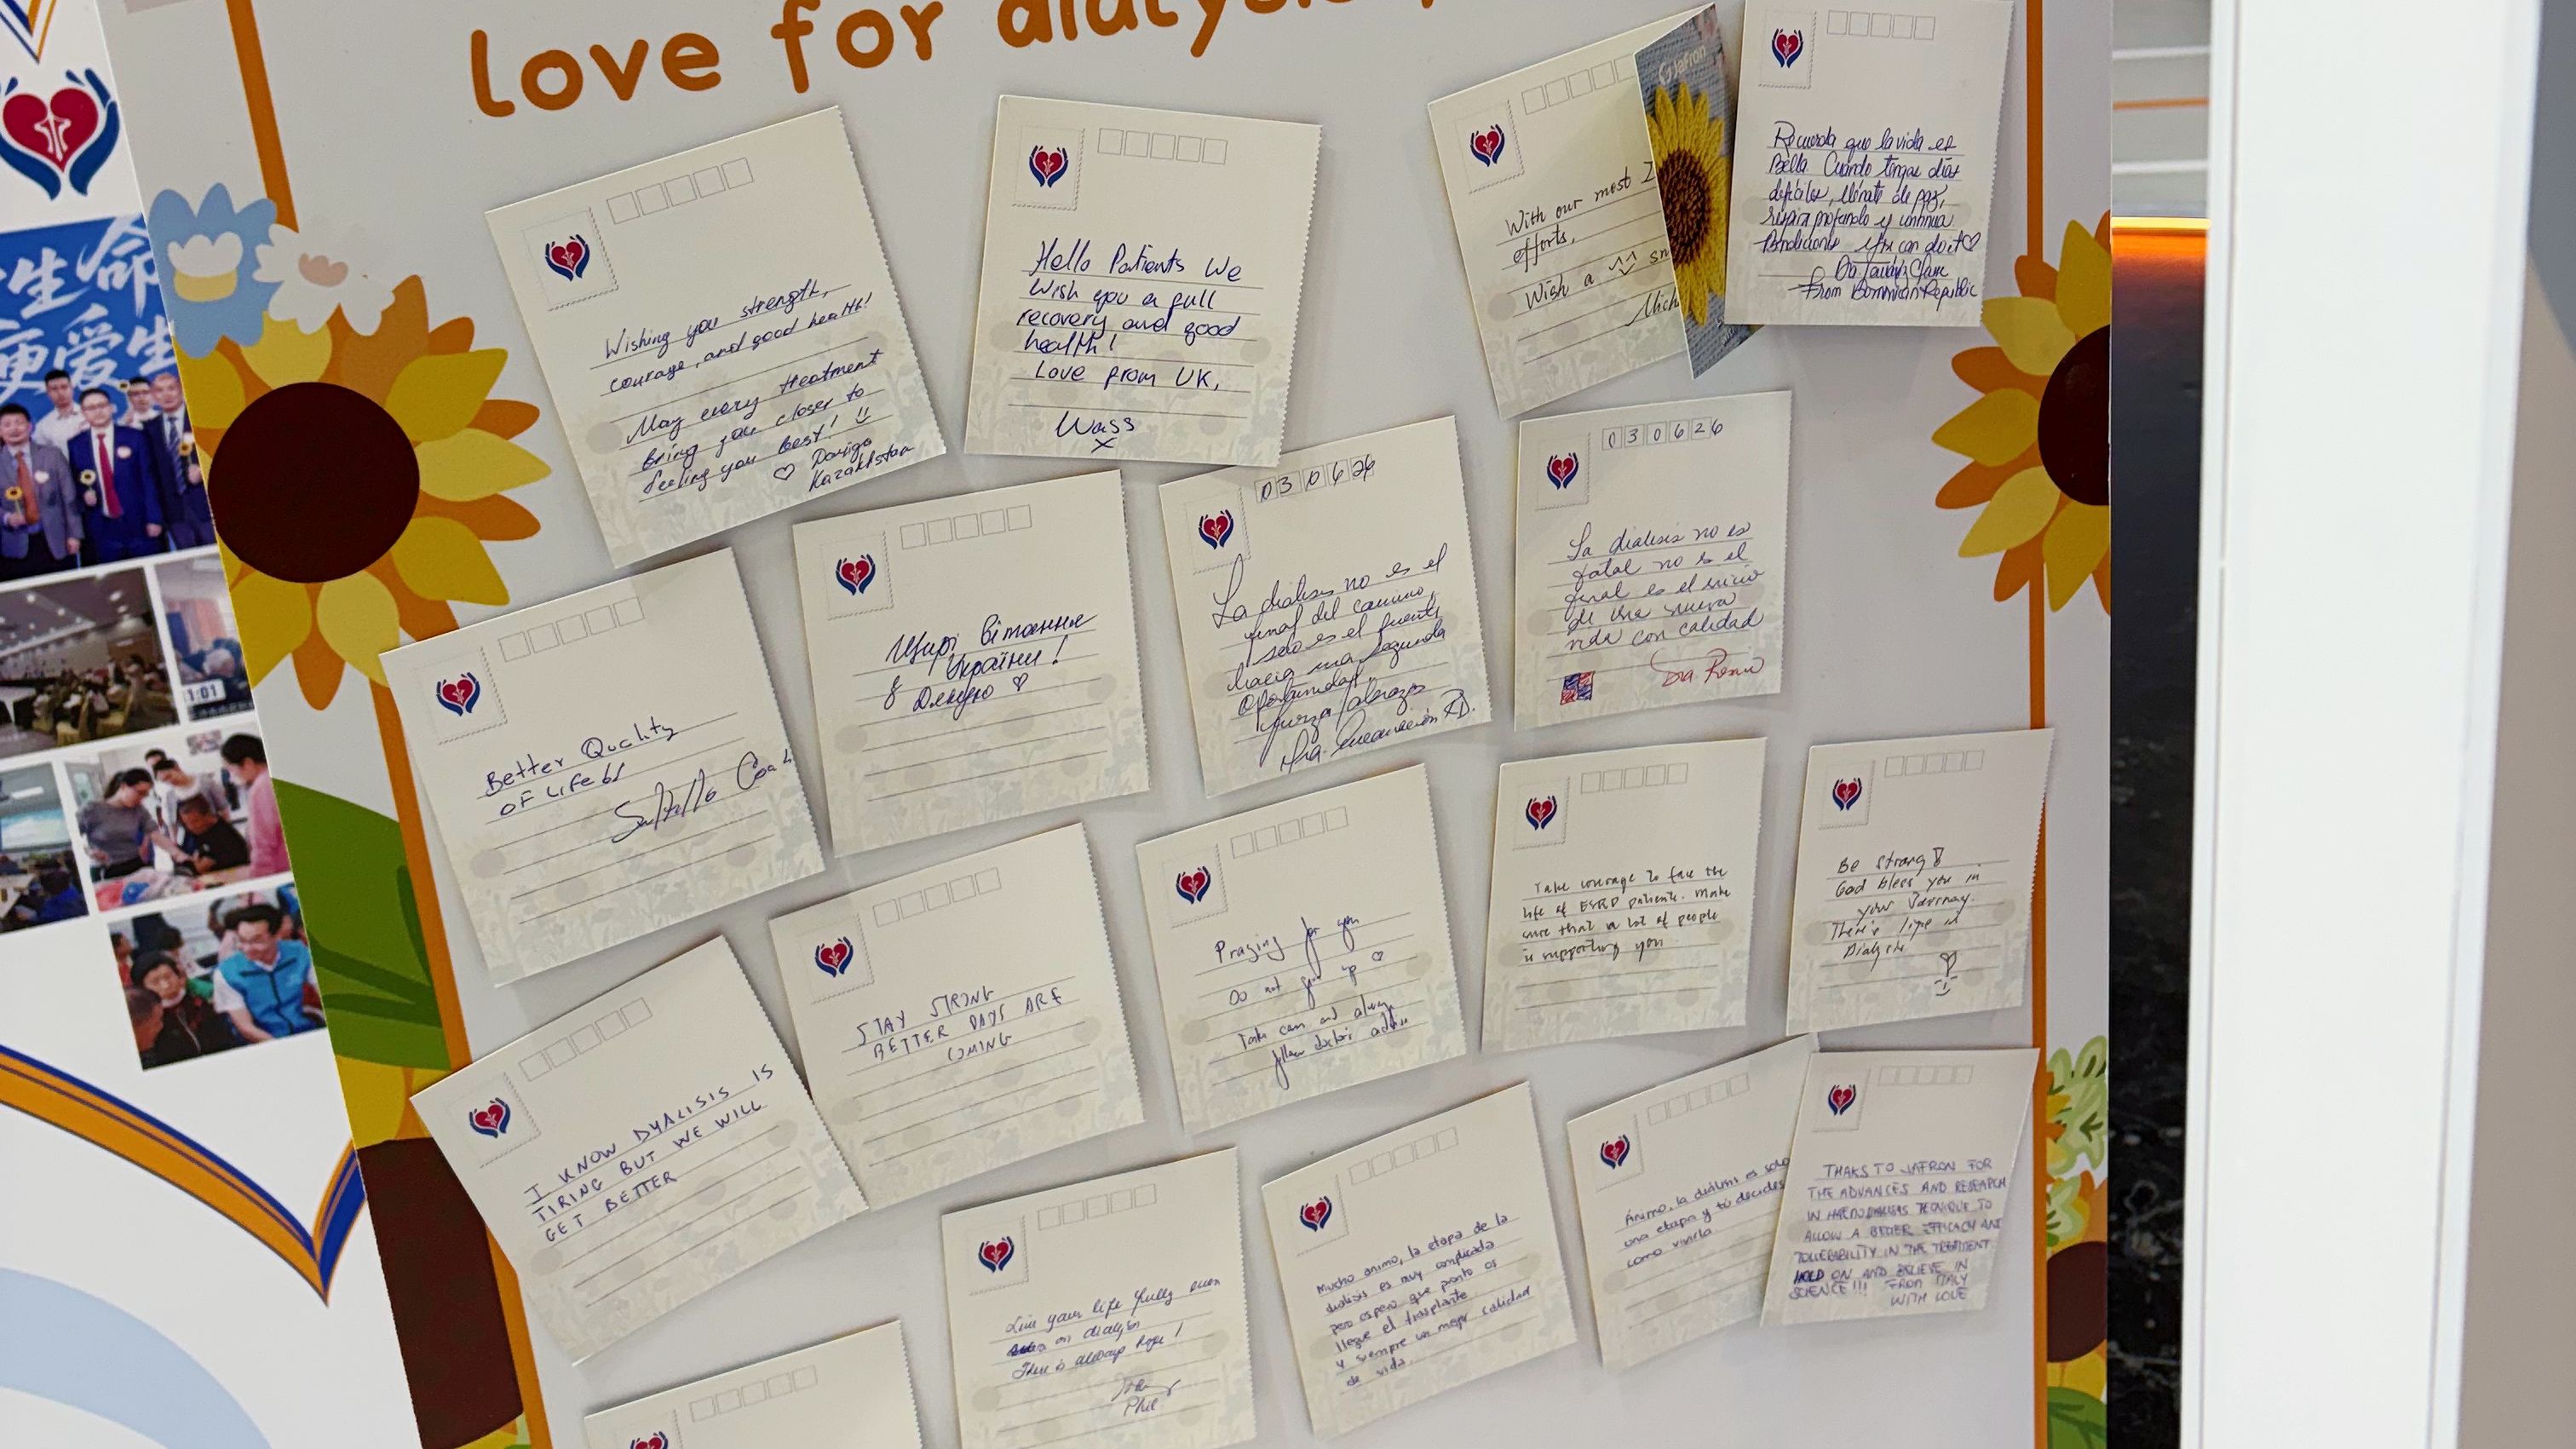 love for dialysis
Wishing you strength,
courage, and good health!
May every treatment
bring you closer to
feeling you best!
Kazakhstan
Hello Patients We
Wish you a full
recovery and good
health!
Love from UK,
Wass
x
With our most
efforts,
Wish a
Mich
Jafron
Recuerda que la vida es
Bella. Cuando tengas días
difíciles, llénate de paz,
respira profundo y continua
Bendiciones You can do it ♡
From Dominican Republic
生命
更爱生
Better Quality
OF LiFe
Щирі вітання
з України!
Дякую ♡
030626
La dialisis no es el
final del camino,
solo es el puente
hacia una segunda
Oportunidad.
fuerza/abrazos
Dra. Encarnación RD.
030626
La dialisis no es
fatal no es el
final es el inicio
de una nueva
vida con calidad
1:01
STAY STRONG
BETTER DAYS ARE
COMING
Praying for you
Do not give up ♡
Take care and always
follow doctor advise
Take courage to face the
life of ESRD patients. Make
sure that a lot of people
is supporting you
Be strong!
God bless you in
your Journey.
There's life in
Dialysis
I KNOW DYALISIS IS
TIRING BUT WE WILL
GET BETTER
Live your life fully even
on dialysis
There is always hope!
Phil
Mucho animo, la etapa de la
dialisis es muy complicada
pero espero que pronto os
llegue el trasplante
y siempre un mejor calidad
de vida.
Ánimo, la diálisis es solo
una etapa y tú decides
como vivirla
THAKS TO JAFRON FOR
THE ADVANCES AND RESEARCH
IN HAEMODIALISIS TECNIQUE TO
ALLOW A BETTER EFFICACY AND
TOLLERABILITY IN THE TREATMENT.
HOLD ON AND BELIEVE IN
SCIENCE!!! FROM ITALY
WITH LOVE